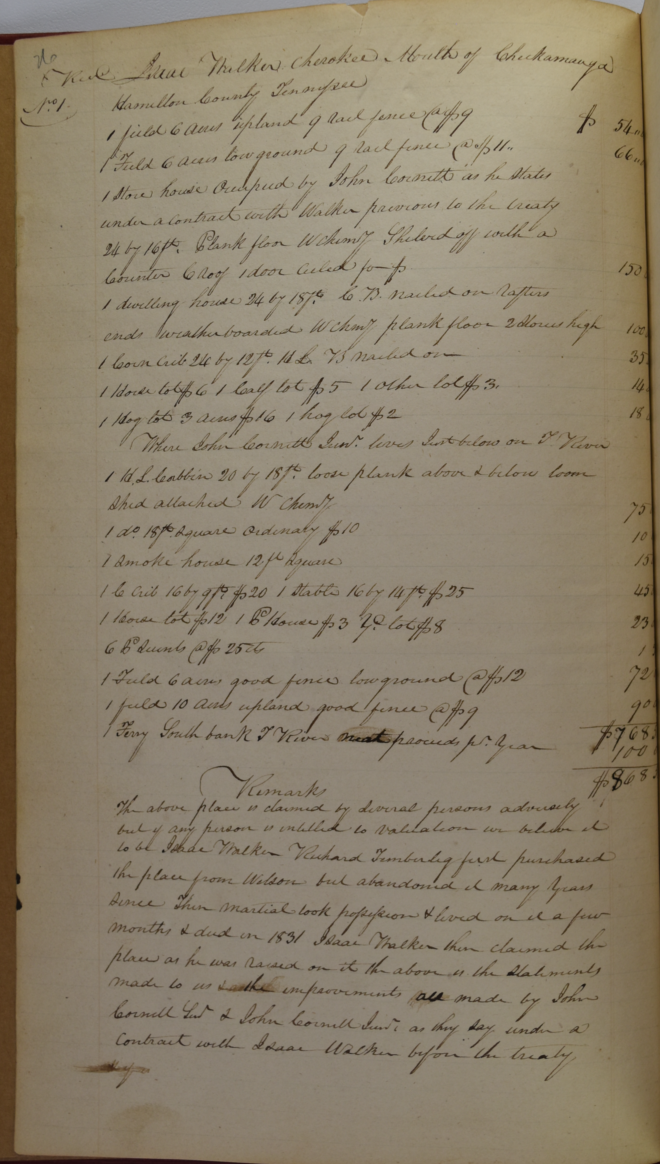 Isaac Walker Cherokee Mouth of Chickamauga
No 1. Hamilton County Tennessee
1 field 6 acres upland 9 rail fence @ $9 $ 54
1 Field 6 acres low ground 9 rail fence @ $11 66
1 Store house Occupied by John Cornett as he states
under a contract with Walker previous to the treaty
24 by 16 ft. Plank floor W Chimy Shelved off with a
Counter C Roof 1 door ceiled for $ 150
1 dwelling house 24 by 18 ft. C. B. nailed on rafters
ends weatherboarded W Chimy plank floor 2 Stories high 100
1 Corn Crib 24 by 12 ft. H L B nailed on 35
1 Horse lot $6 1 Calf lot $5 1 other lot $3. 14
1 Hog lot 3 acres $16 1 hog lot $2 18
Where John Cornett Junr. lives Just below on T River
1 H. L. Cabbin 20 by 18 ft. loose plank above & below loom
Shed attached W Chimy 75
1 do 18 ft square ordinary $10 10
1 Smoke house 12 ft square 15
1 C Crib 16 by 9 ft $20 1 Stable 16 by 14 ft $25 45
1 Horse lot $12 1 Po House $3 Yd. lot $8 23
6 Po @ $ 25 cts 1
1 Field 6 acres good fence low ground @ $12 72
1 field 10 acres upland good fence @ $9 90
1 Ferry South bank T River proceeds pr. Year $768
100
$868
Remarks
The above place is claimed by several persons adversely
but if any person is intitled to valuation we believe it
to be Isaac Walker Richard Timberlig first purchased
the place from Wilson but abandoned it many Years
Since Then Martial took possession & lived on it a few
months & died in 1831 Isaac Walker then claimed the
place as he was raised on it the above is the Statements
made to us the improvements all made by John
Cornett Senr & John Cornett Junr. as they say under a
Contract with Isaac Walker before the treaty